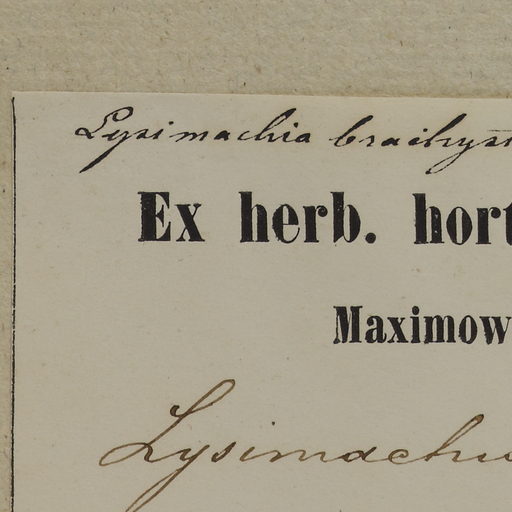 Lysimachia brachyst
Ex herb. hort
Maximow
Lysimachia